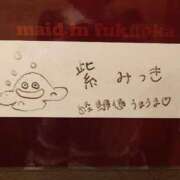 maid in fukuoka
紫 みつき
うまうま♡